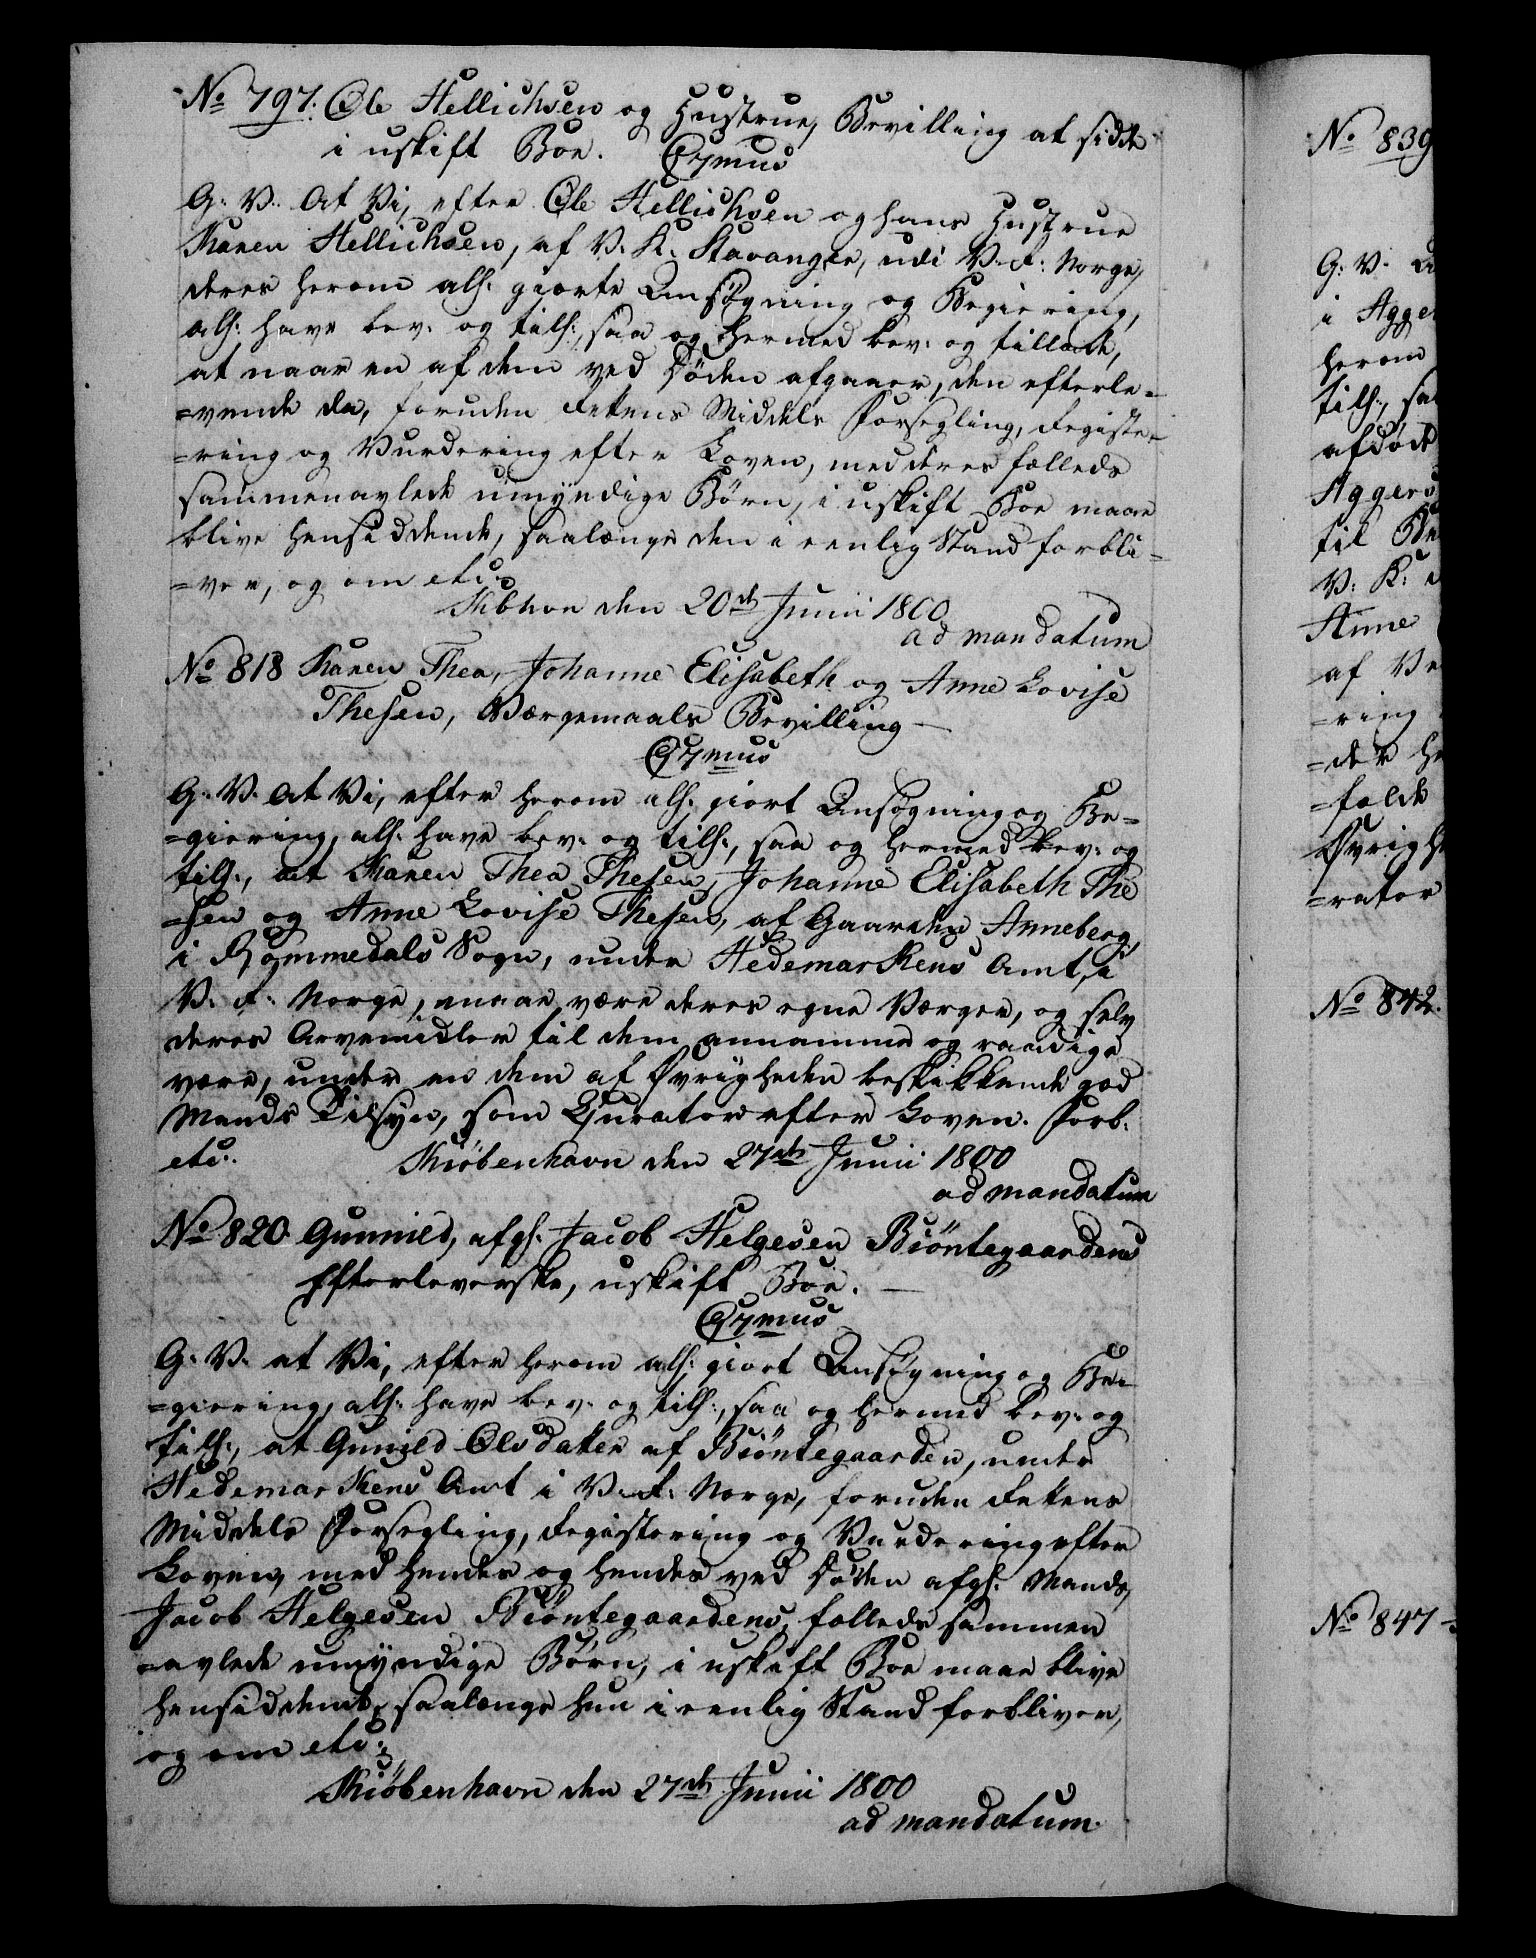 No 797. Ole Hellichsen og Hustrue, Bevilling at sidde
i uskift Boe. C7mus
G: V. At Vi, efter Ole Hellichsen og hans Hustrue
Karen Hellichsen, af V. K. Stavanger, udi V. R: Norge,
deres herom alh: giorte Ansøgning og Begiering,
alh: have bev: og tilh:, saa og hermed bev: og tillade,
at naar en af dem ved Døden afgaaer, den efterle-
=vende da, foruden Rettens Middels Forsegling, Registe-
=ring og Vurdering efter Loven, med deres fælleds
sammenavlede umyndige Børn, i uskift Boe maae
blive hensiddende, saalænge den i eenlig Stand forbli-
=ver, og om etc:
Kbhvn den 20de Junii 1800
ad mandatum
No 818 Karen Thea, Johanne Elisabeth og Anne Lovise
Thesen, Værgemaals Bevilling
C7mus
G: V. At Vi, efter herom alh: giort Ansøgning og Be-
=giering, alh: have bev: og tilh:, saa og hermed bev: og
tilh:, at Karen Thea Thesen, Johanne Elisabeth The
=sen og Anne Lovise Thesen, af Gaarden Anneberg,
i Rommedals Sogn, under Hedemarkens Amt, i
V. R: Norge, maae være deres egne Værger, og selv
deres Arvemidler til dem annamme og raadige
være, under en dem af Øvrigheden beskikkende god
Mands Tilsyn, som Curator efter Loven. Forb:
etc:. Kiøbenhavn den 27de Junii 1800
ad mandatum
No 820. Gunnild, afg: Jacob Helgesen Biöntegaardens
Efterleverske, uskift Boe.
C7mus
G: V. at Vi, efter herom alh: giort Ansøgning og Be-
=giering, alh: have bev: og tilh:, saa og hermed bev: og
tilh:, at Gunild Olsdatter af Biöntegaarden, under
Hedemarkens Amt i V. R: Norge, foruden Rettens
Middels Forsegling, Registering og Vurdering efter
Loven, med hendes og hendes ved Døden afg: Mands,
Jacob Helgesen Biöntegaardens, fælleds sammen
=avlede umyndige Børn, i uskift Boe maae blive
hensiddende, saalænge hun i eenlig Stand forbliver,
og om etc:
Kiöbenhavn den 27de Junii 1800
ad mandatum.
No 839
G: V.
i Agge
herom
tilh:, saa
afdøde
Aggers
til
V: K:
Anne
af
=ring
=der
=falde
Øvrigh
=rator
No 842.
No 847